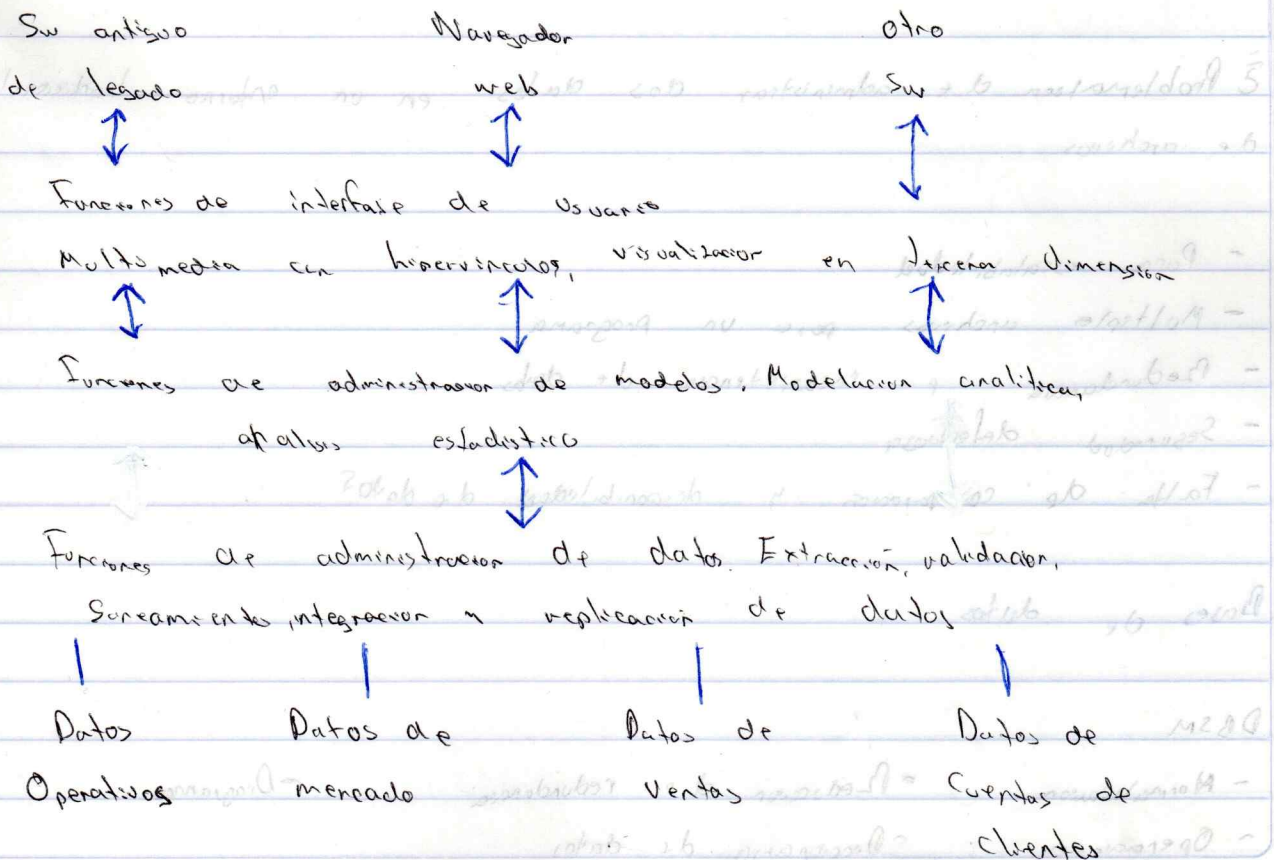 Sw antiguo Navegador otro
de legado web Sw
Funciones de interfase de usuario
Multimedia con hipervinculos, visualizacion en tercera dimension
Funciones de administracion de modelos. Modelacion analitica,
analisis estadistico
Funciones de administracion de datos. Extracción, validacion,
Saneamiento, integracion y replicación de datos
Datos Datos de Datos de Datos de
Operativos mercado ventas Cuentas de
clientes